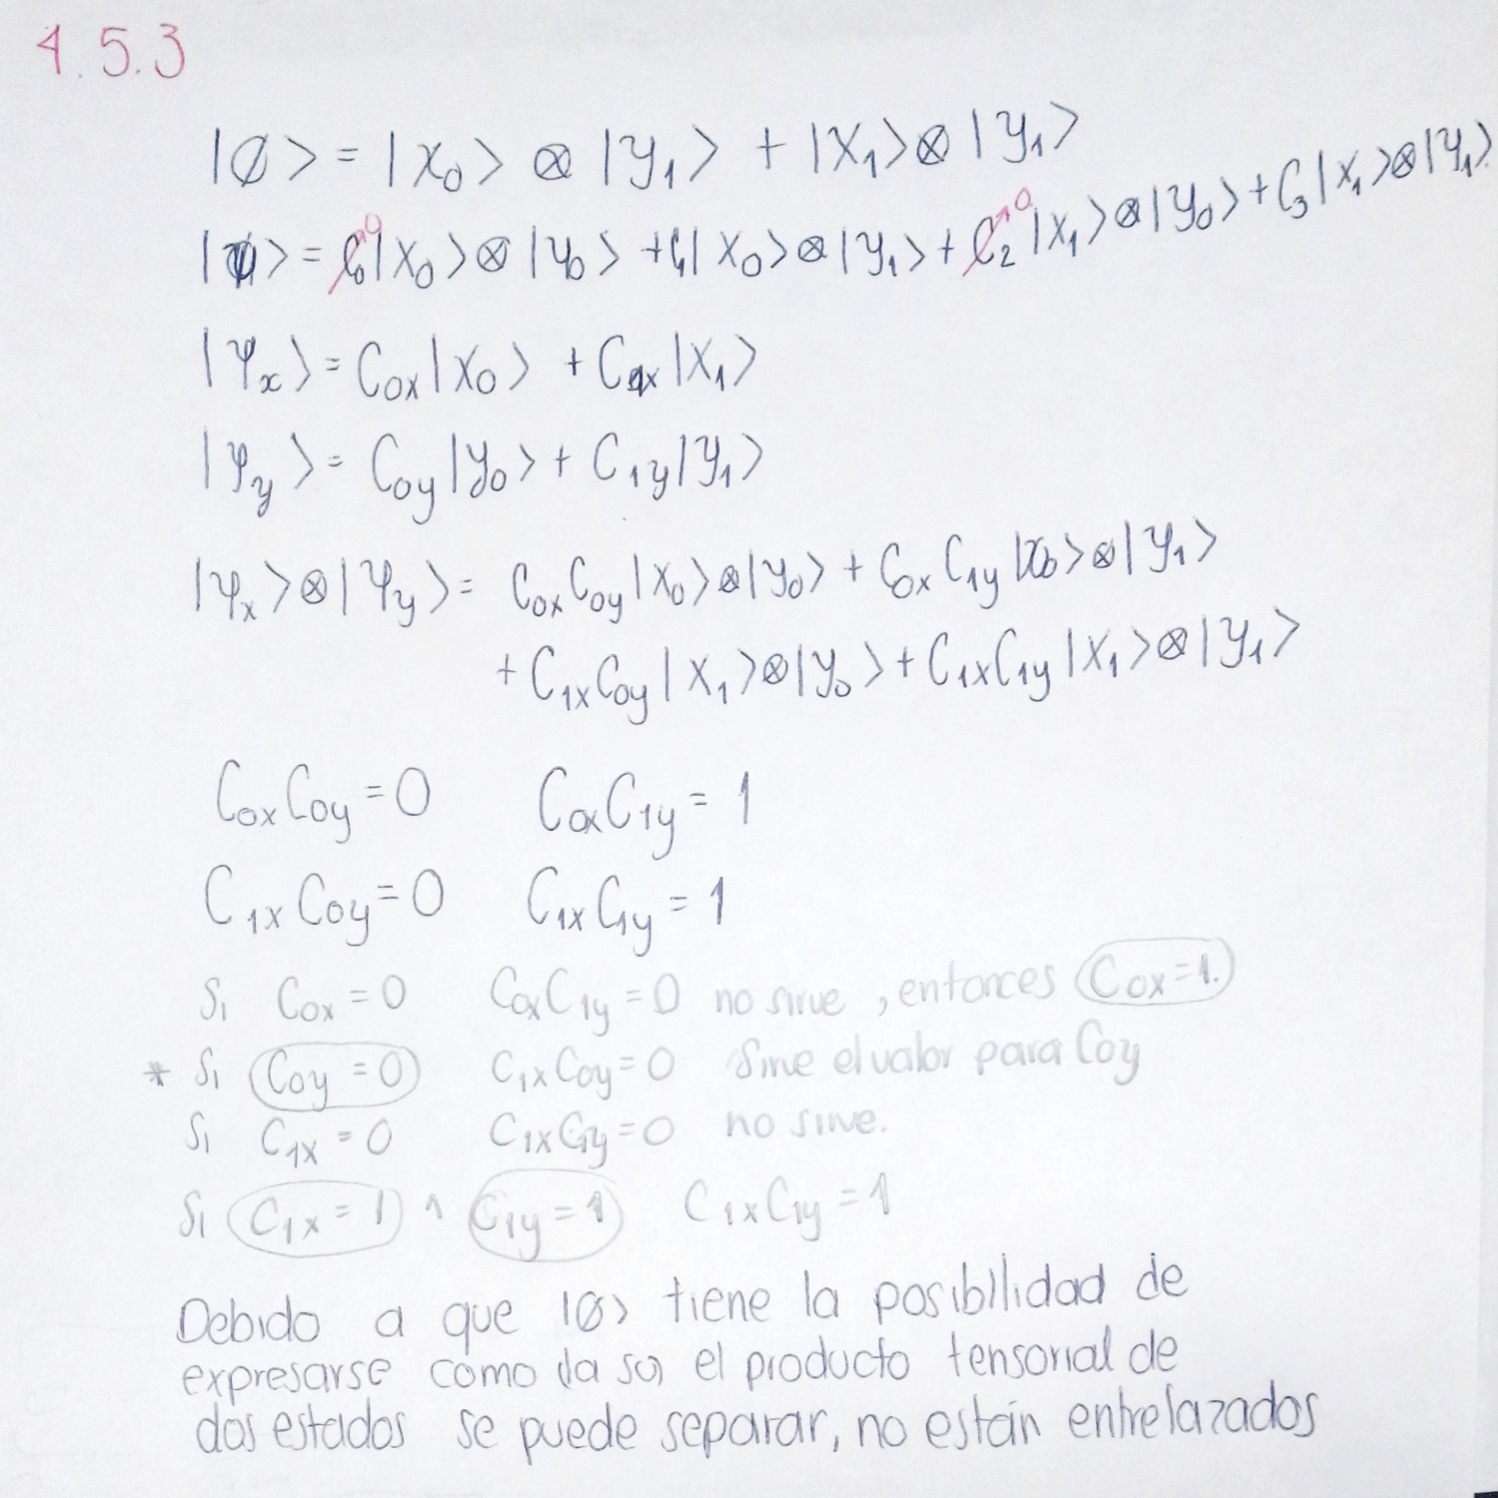 4.5.3
|ø⟩ = |x₀⟩ ⊗ |y₁⟩ + |x₁⟩ ⊗ |y₁⟩
|ψ⟩ = C₀⁰|x₀⟩ ⊗ |y₀⟩ + C₁|x₀⟩ ⊗ |y₁⟩ + C₂⁰|x₁⟩ ⊗ |y₀⟩ + C₃|x₁⟩ ⊗ |y₁⟩
|Ψx⟩ = C₀x|x₀⟩ + C₁x|x₁⟩
|Ψy⟩ = C₀y|y₀⟩ + C₁y|y₁⟩
|Ψx⟩ ⊗ |Ψy⟩ = C₀xC₀y|x₀⟩ ⊗ |y₀⟩ + C₀xC₁y|x₀⟩ ⊗ |y₁⟩
+ C₁xC₀y|x₁⟩ ⊗ |y₀⟩ + C₁xC₁y|x₁⟩ ⊗ |y₁⟩
C₀xC₀y = 0 C₀xC₁y = 1
C₁xC₀y = 0 C₁xC₁y = 1
Si C₀x = 0 C₀xC₁y = 0 no sirve, entonces C₀x = 1.
* Si C₀y = 0 C₁xC₀y = 0 Sirve el valor para C₀y
Si C₁x = 0 C₁xC₁y = 0 no sirve.
Si C₁x = 1 ∧ C₁y = 1 C₁xC₁y = 1
Debido a que |ø⟩ tiene la posibilidad de
expresarse como (la so) el producto tensorial de
dos estados se puede separar, no están entrelazados